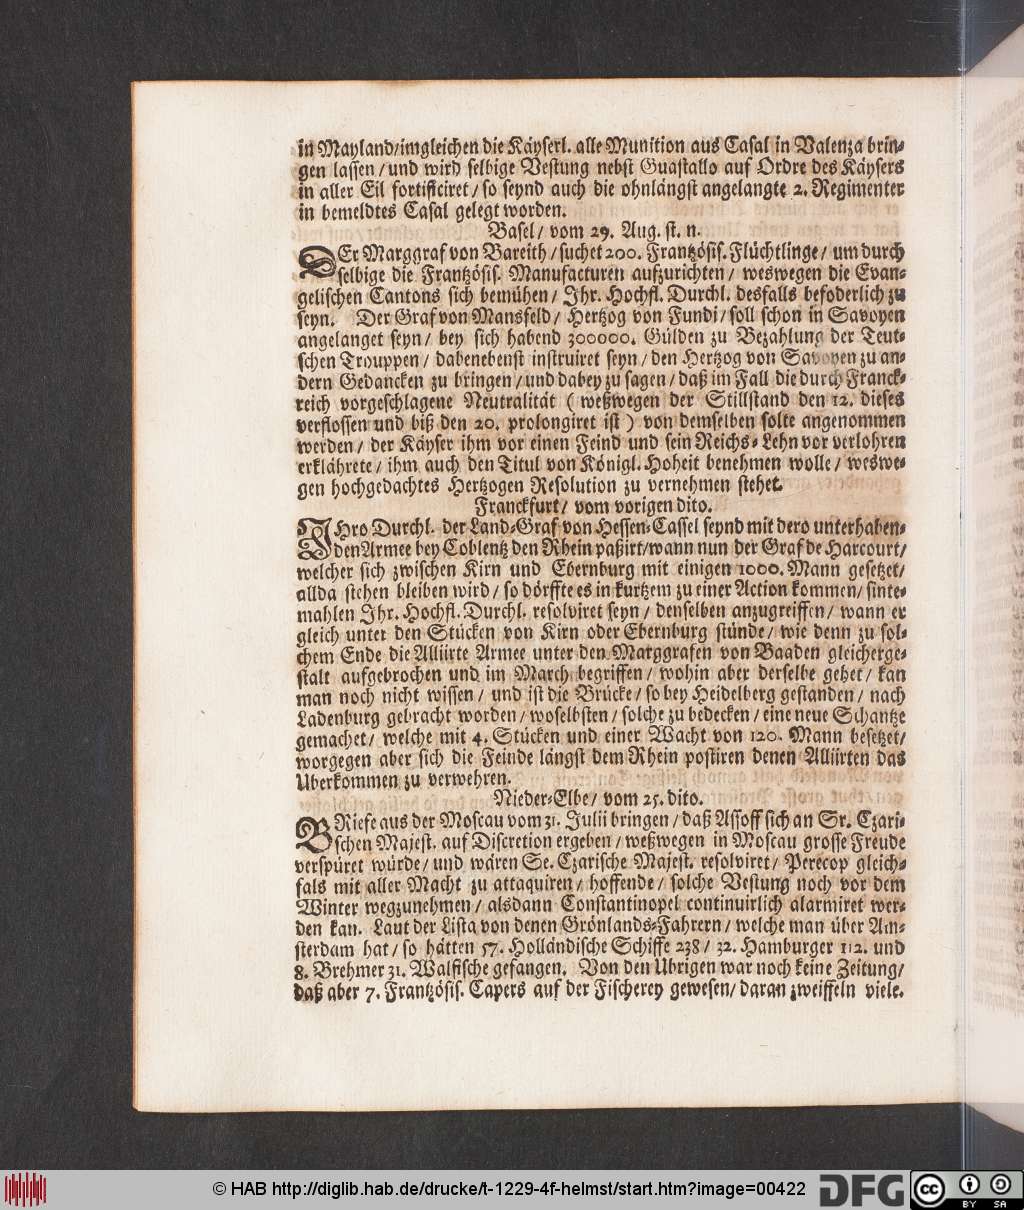 in Mayland/imgleichen die Käyserl. alle Munition aus Casal in Valenza brin-
gen lassen/und wird selbige Vestung nebst Guastallo auf Ordre des Käysers
in aller Eil fortificiret/so seynd auch die ohnlängst angelangte 2. Regimenter
in bemeldtes Casal gelegt worden.
Basel/ vom 29. Aug. st. n.
DEr Marggraf von Bareith/suchet 200. Frantzösis. Flüchtlinge/ um durch
selbige die Frantzösis. Manufacturen aufzurichten/ weswegen die Evan-
gelischen Cantons sich bemühen/ Ihr. Hochfl. Durchl. desfalls befoderlich zu
seyn. Der Graf von Mansfeld/ Hertzog von Fundi/soll schon in Savoyen
angelanget seyn/ bey sich habend 300000. Gülden zu Bezahlung der Teut-
schen Trouppen/ dabenebenst instruiret seyn/den Hertzog von Savoyen zu an-
dern Gedancken zu bringen/und dabey zu sagen/daß im Fall die durch Franck-
reich vorgeschlagene Neutralität (weßwegen der Stillstand den 12. dieses
verflossen und biß den 20. prolongiret ist) von demselben solte angenommen
werden/ der Käyser ihm vor einen Feind und sein Reichs-Lehn vor verlohren
erklährete/ ihm auch den Titul von Königl. Hoheit benehmen wolle/ weswe-
gen hochgedachtes Hertzogen Resolution zu vernehmen stehet.
Franckfurt/ vom vorigen dito.
IHro Durchl. der Land-Graf von Hessen-Cassel seynd mit dero unterhaben-
den Armee bey Coblentz den Rhein paßirt/wann nun der Graf de Harcourt/
welcher sich zwischen Kirn und Ebernburg mit einigen 1000. Mann gesetzet/
allda stehen bleiben wird/ so dörffte es in kurtzem zu einer Action kommen/ sinte-
mahlen Ihr. Hochfl. Durchl. resolviret seyn/ denselben anzugreiffen/ wann er
gleich unter den Stücken von Kirn oder Ebernburg stünde/ wie denn zu sol-
chem Ende die Alliirte Armee unter den Marggrafen von Baaden gleicherge-
stalt aufgebrochen und im March begriffen/ wohin aber derselbe gehet/ kan
man noch nicht wissen/ und ist die Brücke/so bey Heidelberg gestanden/ nach
Ladenburg gebracht worden/woselbsten/solche zu bedecken/eine neue Schantze
gemachet/ welche mit 4. Stücken und einer Wacht von 120. Mann besetzet/
worgegen aber sich die Feinde längst dem Rhein postiren denen Alliirten das
Uberkommen zu verwehren.
Nieder-Elbe/ vom 25. dito.
BRiefe aus der Moscau vom 31. Julii bringen/daß Assoff sich an Sr. Czari-
schen Majest. auf Discretion ergeben/weßwegen in Moscau grosse Freude
verspüret würde/und wären Se. Czarische Majest. resolviret/ Perecop gleich-
fals mit aller Macht zu attaquiren/ hoffende/ solche Vestung noch vor dem
Winter wegzunehmen/ alsdann Constantinopel continuirlich alarmiret wer-
den kan. Laut der Lista von denen Grönlands-Fahrern/ welche man über Am-
sterdam hat/so hätten 57. Holländische Schiffe 238/ 32. Hamburger 112. und
8. Brehmer 31. Walfische gefangen. Von den Ubrigen war noch keine Zeitung/
daß aber 7. Frantzösis. Capers auf der Fischerey gewesen/daran zweiffeln viele.
© HAB http://diglib.hab.de/drucke/t-1229-4f-helmst/start.htm?image=00422
DFG
cc BY SA